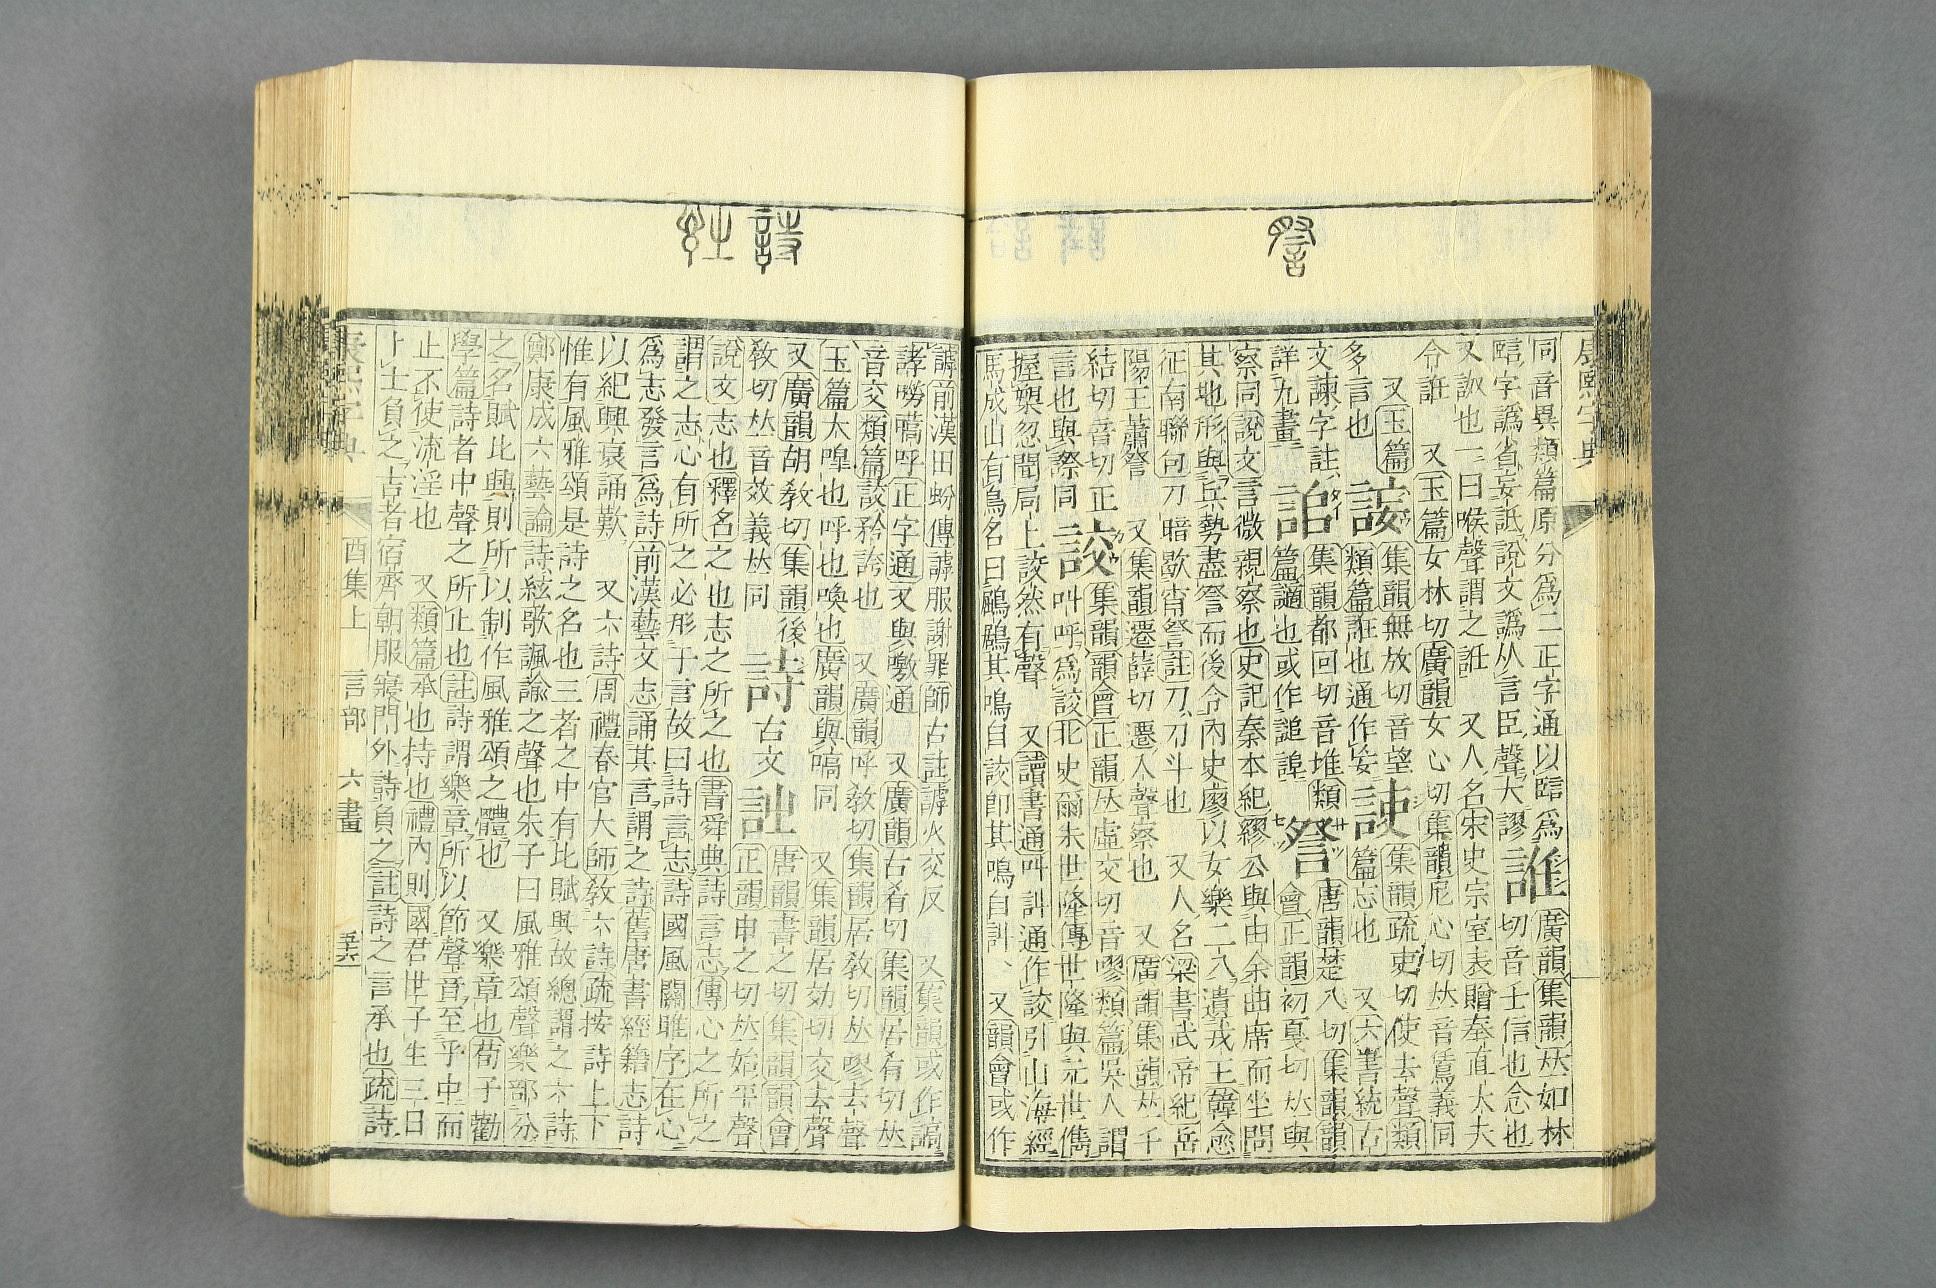 詧
康熙字典
同音異類篇原分爲二正字通以䛨爲
䛨字譌省妄詆說文譌从言臣聲大謬
誑廣韻集韻𠀤如林切音壬信也念也
又諏也一曰喉聲謂之誑 又人名宋史宗室表贈奉直大夫
令誑 又玉篇女林切廣韻女心切集韻尼心切𠀤音賃義同
又玉篇
多言也
䛃集韻無放切音望類篇誑也通作妄
䛏集韻疏吏切使去聲類篇忘也 又六書統古
文諫字註
詯集韻都回切音堆類篇讁也或作謚諻
詧唐韻楚八切集韻韻會正韻初戛切𠀤與
詳九畫
察同說文言微親察也史記秦本紀繆公與由余曲席而坐問
其地形與兵勢盡詧而後令內史廖以女樂二八遺戎王韓愈
征南聯句刀暗歇宵詧註刀刀斗也 又人名梁書武帝紀岳
陽王蕭詧 又集韻遷薛切遷入聲察也 又廣韻集韻𠀤千
結切音切正
詨集韻韻會正韻𠀤虛交切音嘐類篇吳人謂
言也與際同
叫呼爲詨北史爾朱世隆傳世隆與元世儁
握槊忽聞局上詨然有聲 又讀書通叫訆通作詨引山海經
馬成山有鳥名曰鶌鶋其鳴自詨卽其鳴自訆 又韻會或作
詩 䛈
謼前漢田蚡傳謼服謝罪師古註謼火交反 又集韻或作謞
誟嘮嚆呼正字通又與嗷通 又廣韻古肴切集韻居肴切𠀤
音交類篇詨矜誇也 又廣韻呼敎切集韻居敎切𠀤嘐去聲
玉篇大嘷也呼也喚也廣韻與嗃同 又集韻居効切交去聲
又廣韻胡敎切集韻後敎切𠀤音效義𠀤同
詩古文𧥳唐韻書之切集韻韻會
正韻申之切𠀤始平聲
說文志也釋名之也志之所之也書舜典詩言志傳心之所之
謂之志心有所之必形于言故曰詩言志詩國風關雎序在心
爲志發言爲詩前漢藝文志誦其言謂之詩舊唐書經籍志詩
以紀興衰誦歎 又六詩周禮春官大師敎六詩疏按詩上下
惟有風雅頌是詩之名也三者之中有比賦興故總謂之六詩
鄭康成六藝論詩絃歌諷諭之聲也朱子曰風雅頌聲樂部分
之名賦比興則所以制作風雅頌之體也 又樂章也荀子勸
學篇詩者中聲之所止也註詩謂樂章所以節聲音至乎中而
止不使流淫也 又類篇承也持也禮內則國君世子生三日
卜士負之吉者宿齊朝服寢門外詩負之註詩之言承也疏詩
康熙字典 酉集上 言部 六畫 五六